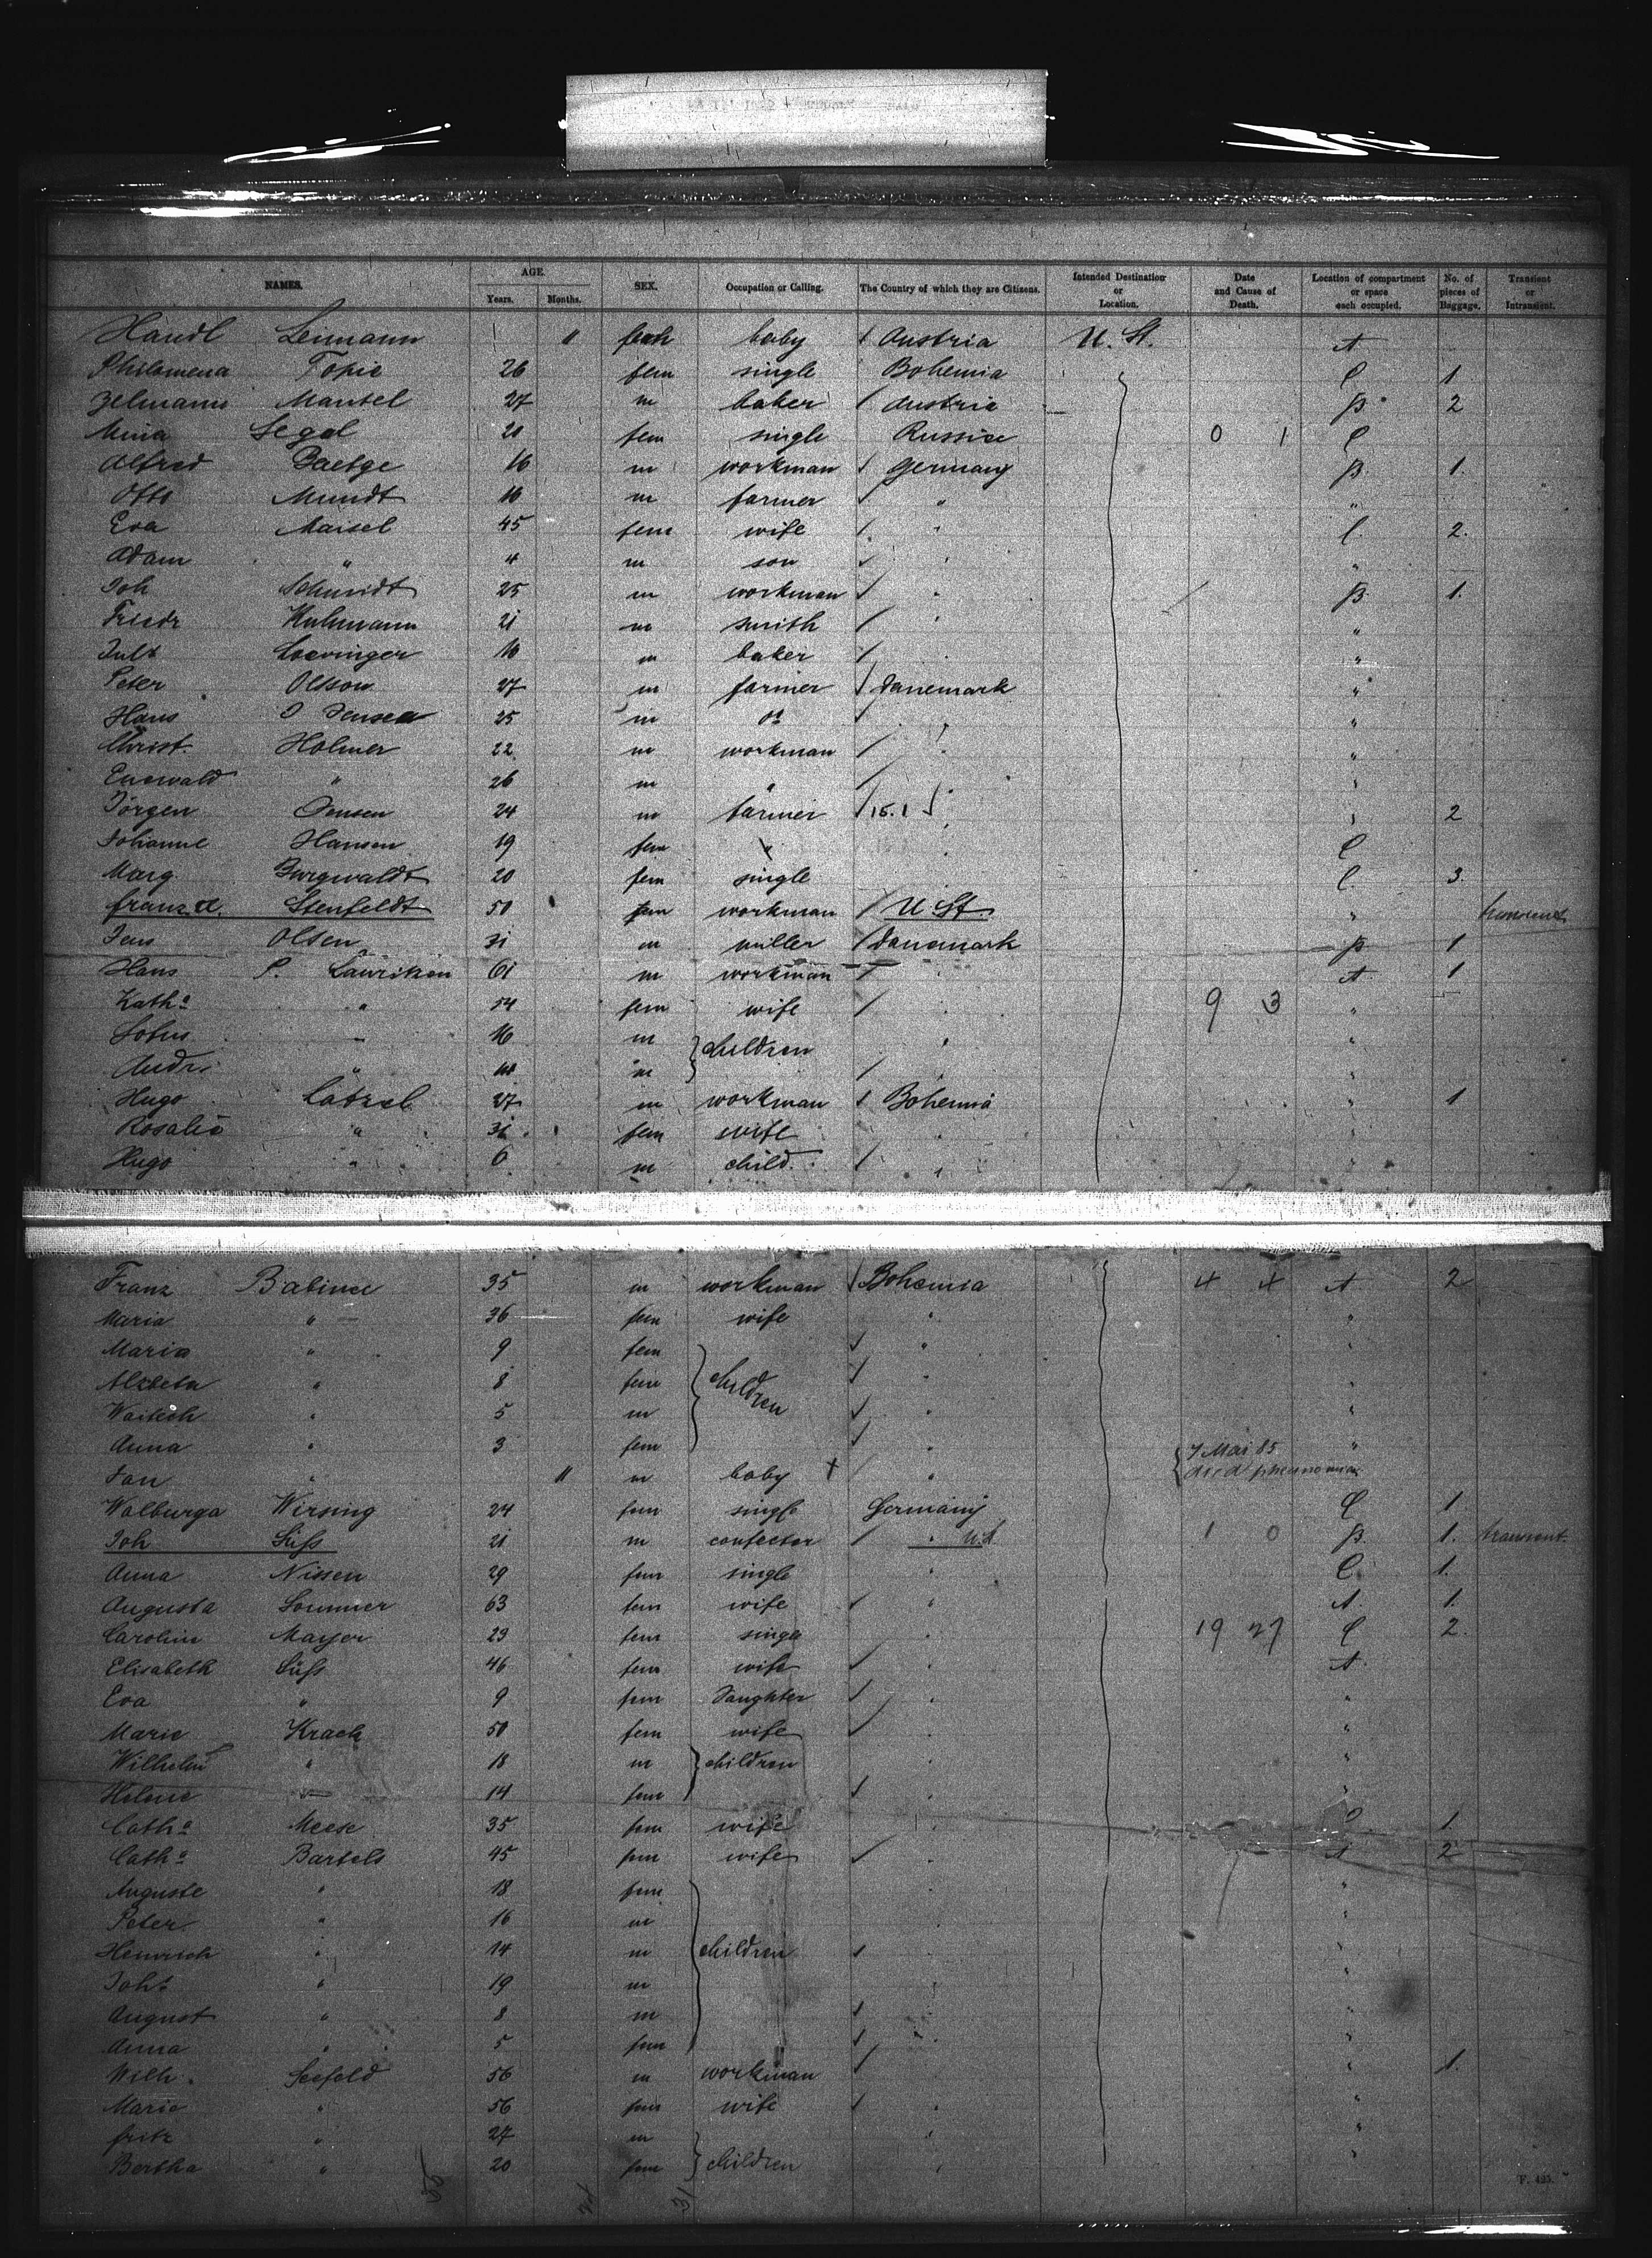 NAMES. AGE. SEX. Occupation or Calling. The Country of which they are Citizens. Intended Destination or Location. Date and Cause of Death. Location of compartment or space each occupied. No. of pieces of Baggage. Transient or Intransient.
Years. Months.
Handl Leimann 11 fem baby Austria U. St. A
Philomena Topic 26 fem single Bohemia C 1
Zelmann Mantel 27 m baker Austria B 2
Mina Segal 20 fem single Russia 0 1 C
Alfred Baetge 16 m workman Germany B 1.
Otto Mundt 16 m farmer " "
Eva Maisel 45 fem wife " C. 2.
Adam " 4 m son "
Joh Schmidt 25 m workman " B 1.
Friedr Kuhmann 21 m smith " "
Loevinger 16 m baker " "
Peter Olsson 27 m farmer Danemark "
Hans J Jensen 25 m do " "
Christ. Holmer 22 m workman " "
" 26 m " "
Jörgen Jensen 24 m farmer 15.1 " 2
Johanne Hansen 19 fem " C
Marg Burgwaldt 20 fem single C. 3.
Franz A. Stenfeldt 50 workman U St " transient
Jens Olsen 31 m miller Danemark B 1
Hans P. Lauritzen 61 m workman " A 1
Kath.a " 54 fem wife " 9 3 "
" 16 m children " "
Andr. " m "
Hugo Latzel 27 m workman Bohemia " 1
Rosalie " 31 fem wife " "
Hugo " 6 m child. " "
Franz Babinec 35 m workman Bohemia 4 4 A 2
Maria " 36 fem wife " "
Maria " 9 fem "
Alzbeta " 8 fem children " "
" 5 m " "
Anna " 3 fem " 7 Mai 85 "
Jan " 11 m baby + " died pneunomia
Walburga Wirsing 24 fem single Germany C 1.
Joh Süß 21 m confector " U.S. 1 0 B. 1. transient.
Anna Nissen 29 fem single " C. 1.
Augusta Sommer 63 fem wife " A. 1.
Carolin Mayer 29 fem single " 19 27 C 2.
Elisabeth Süß 46 fem wife " A
Eva " 9 fem Daughter " "
Marie Krack 50 fem wife " "
Wilhelm " 18 m children " "
Helene " 14 fem " "
Cath.a Meese 35 fem wife 1.
Cath.a Bartels 45 fem wife " A 2
Auguste " 18 fem " "
Peter " 16 m "
Heinrich " 14 m children " "
Joh.s " 19 m " "
August " 8 m "
Anna " 5 fem " "
Wilh. Seefeld 56 m workman " 1.
Marie " 56 fem wife " "
Fritz " 27 m " "
Bertha " 20 fem children " "
F. 425.